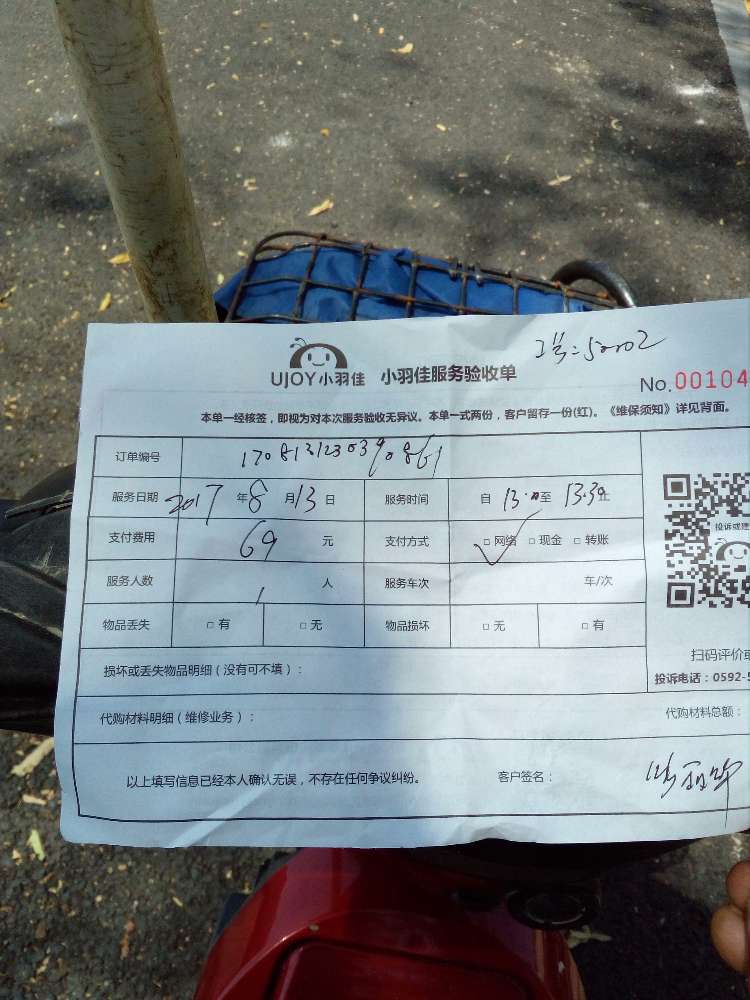 UJOY小羽佳 小羽佳服务验收单
工号:52202
No.00104
本单一经核签，即视为对本次服务验收无异议。本单一式两份，客户留存一份(红)。《维保须知》详见背面。
订单编号
服务日期 2017 年 8 月 13 日 服务时间 自 13:00 至 13:30 止
投诉或建
支付费用 69 元 支付方式 □ 网络 □ 现金 □ 转账
服务人数 1 人 服务车次 车/次
物品丢失 □ 有 □ 无 物品损坏 □ 无 □ 有
扫码评价或
损坏或丢失物品明细（没有可不填）：
投诉电话：0592-5
代购材料明细（维修业务）： 代购材料总额：
以上填写信息已经本人确认无误，不存在任何争议纠纷。 客户签名：